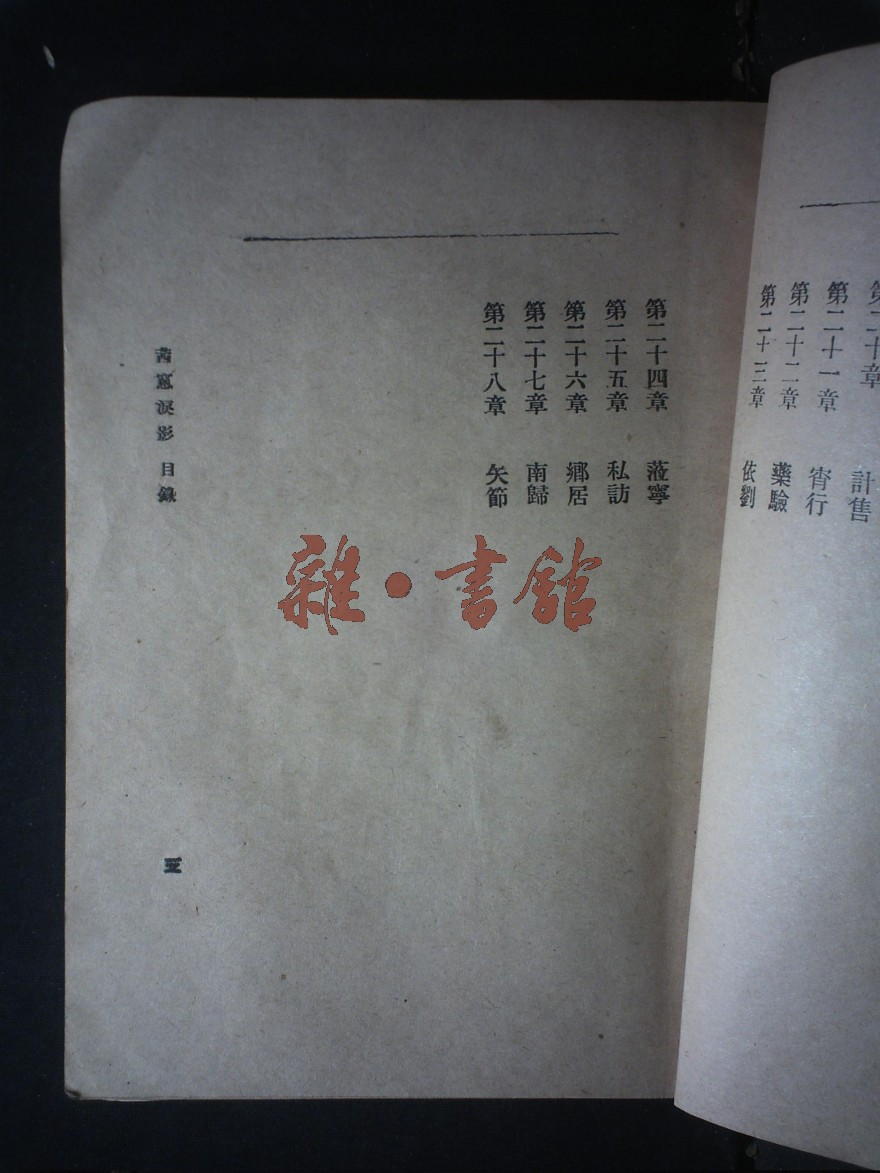 第二十章 計售
第二十一章 宵行
第二十二章 藥驗
第二十三章 依劉
第二十四章 蒞寧
第二十五章 私訪
第二十六章 鄉居
第二十七章 南歸
第二十八章 矢節
茜窗淚影 目錄
三
雜·書館